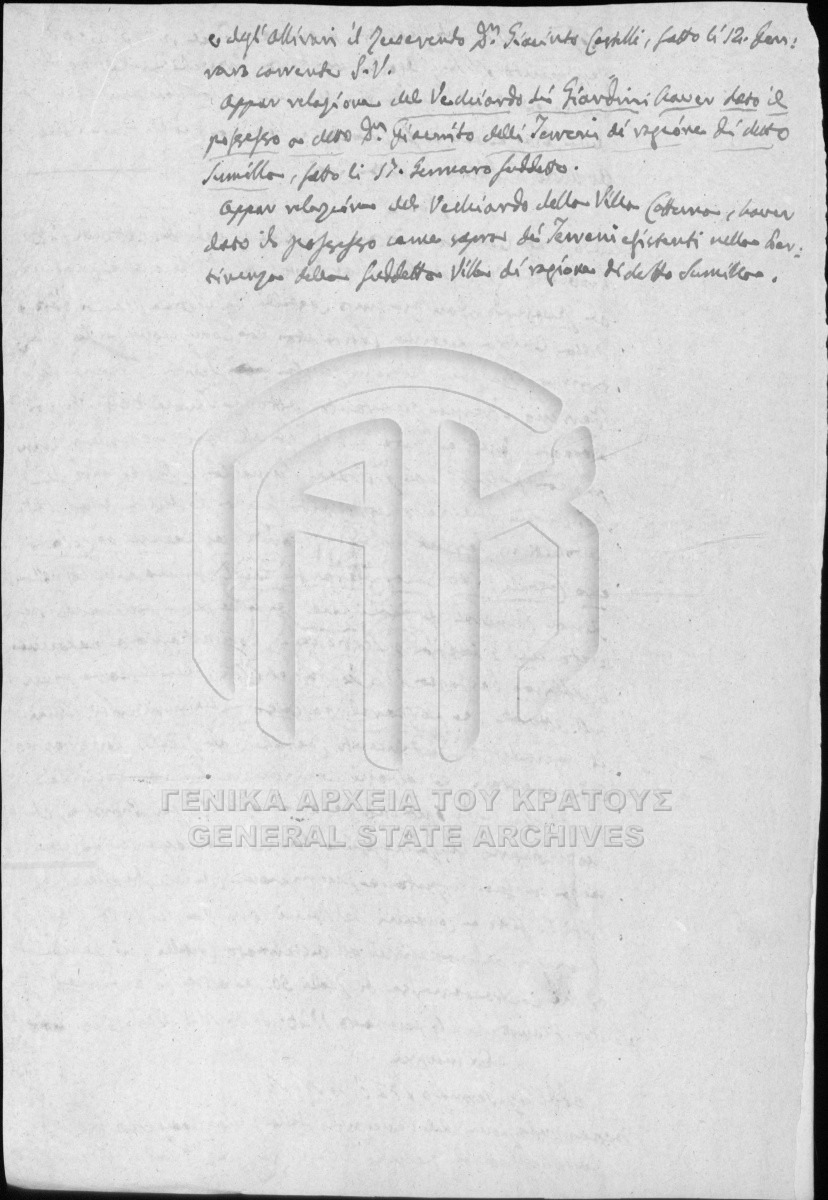 e degli Ollivari il Reverendo Dn Giacinto Castelli, fatto li 12. Gen:
naro corrente S.V.
Appar relazione del Vecchiardo di Giardini haver dato il
possesso a detto Dn Giacinto delli Terreni di ragione di detto
Sumilla, fatto li 17. Gennaro suddetto.
Appar relazione del Vecchiardo della Villa, haver
dato il possesso come sopra di Terreni esistenti nella Per:
tinenza della suddetta Villa di ragione di detto Sumilla.
ΓΕΝΙΚΑ ΑΡΧΕΙΑ ΤΟΥ ΚΡΑΤΟΥΣ
GENERAL STATE ARCHIVES